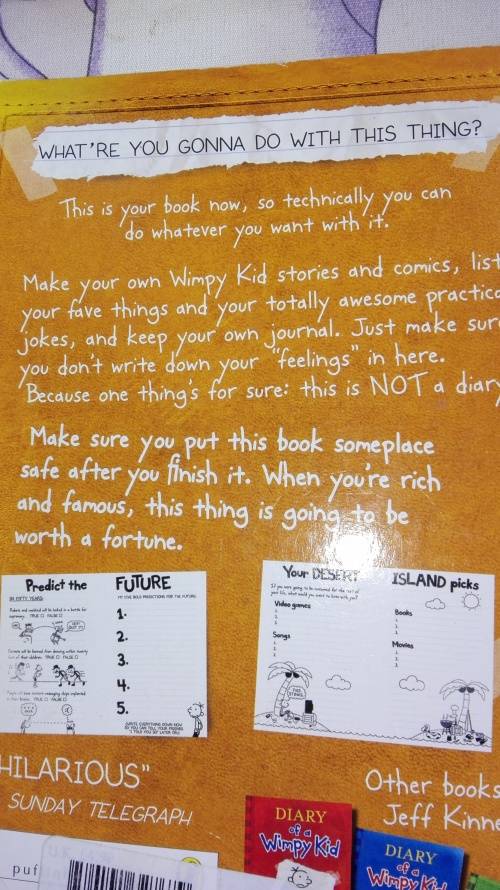 WHAT'RE YOU GONNA DO WITH THIS THING?
This is your book now, so technically you can
do whatever you want with it.
Make your own Wimpy Kid stories and comics, list
your fave things and your totally awesome practica
jokes, and keep your own journal. Just make sur
you don't write down your "feelings" in here.
Because one thing's for sure: this is NOT a diary
Make sure you put this book someplace
safe after you finish it. When you're rich
and famous, this thing is going to be
worth a fortune.
Predict the FUTURE
IN FIFTY YEARS:
MY FIVE BOLD PREDICTIONS FOR THE FUTURE:
TRUE FALSE
TRUE FALSE
TRUE FALSE
1.
2.
3.
4.
5.
(WRITE EVERYTHING DOWN NOW
SO YOU CAN TELL YOUR FRIENDS
"I TOLD YOU SO" LATER ON.)
Your DESERT ISLAND picks
Video games
1.
2.
3.
Songs
1.
2.
3.
Books
1.
2.
3.
Movies
1.
2.
3.
HILARIOUS"
SUNDAY TELEGRAPH
Other books
Jeff Kinne
DIARY
of a
Wimpy Kid
DIARY
of a
Wimpy Kid
puf